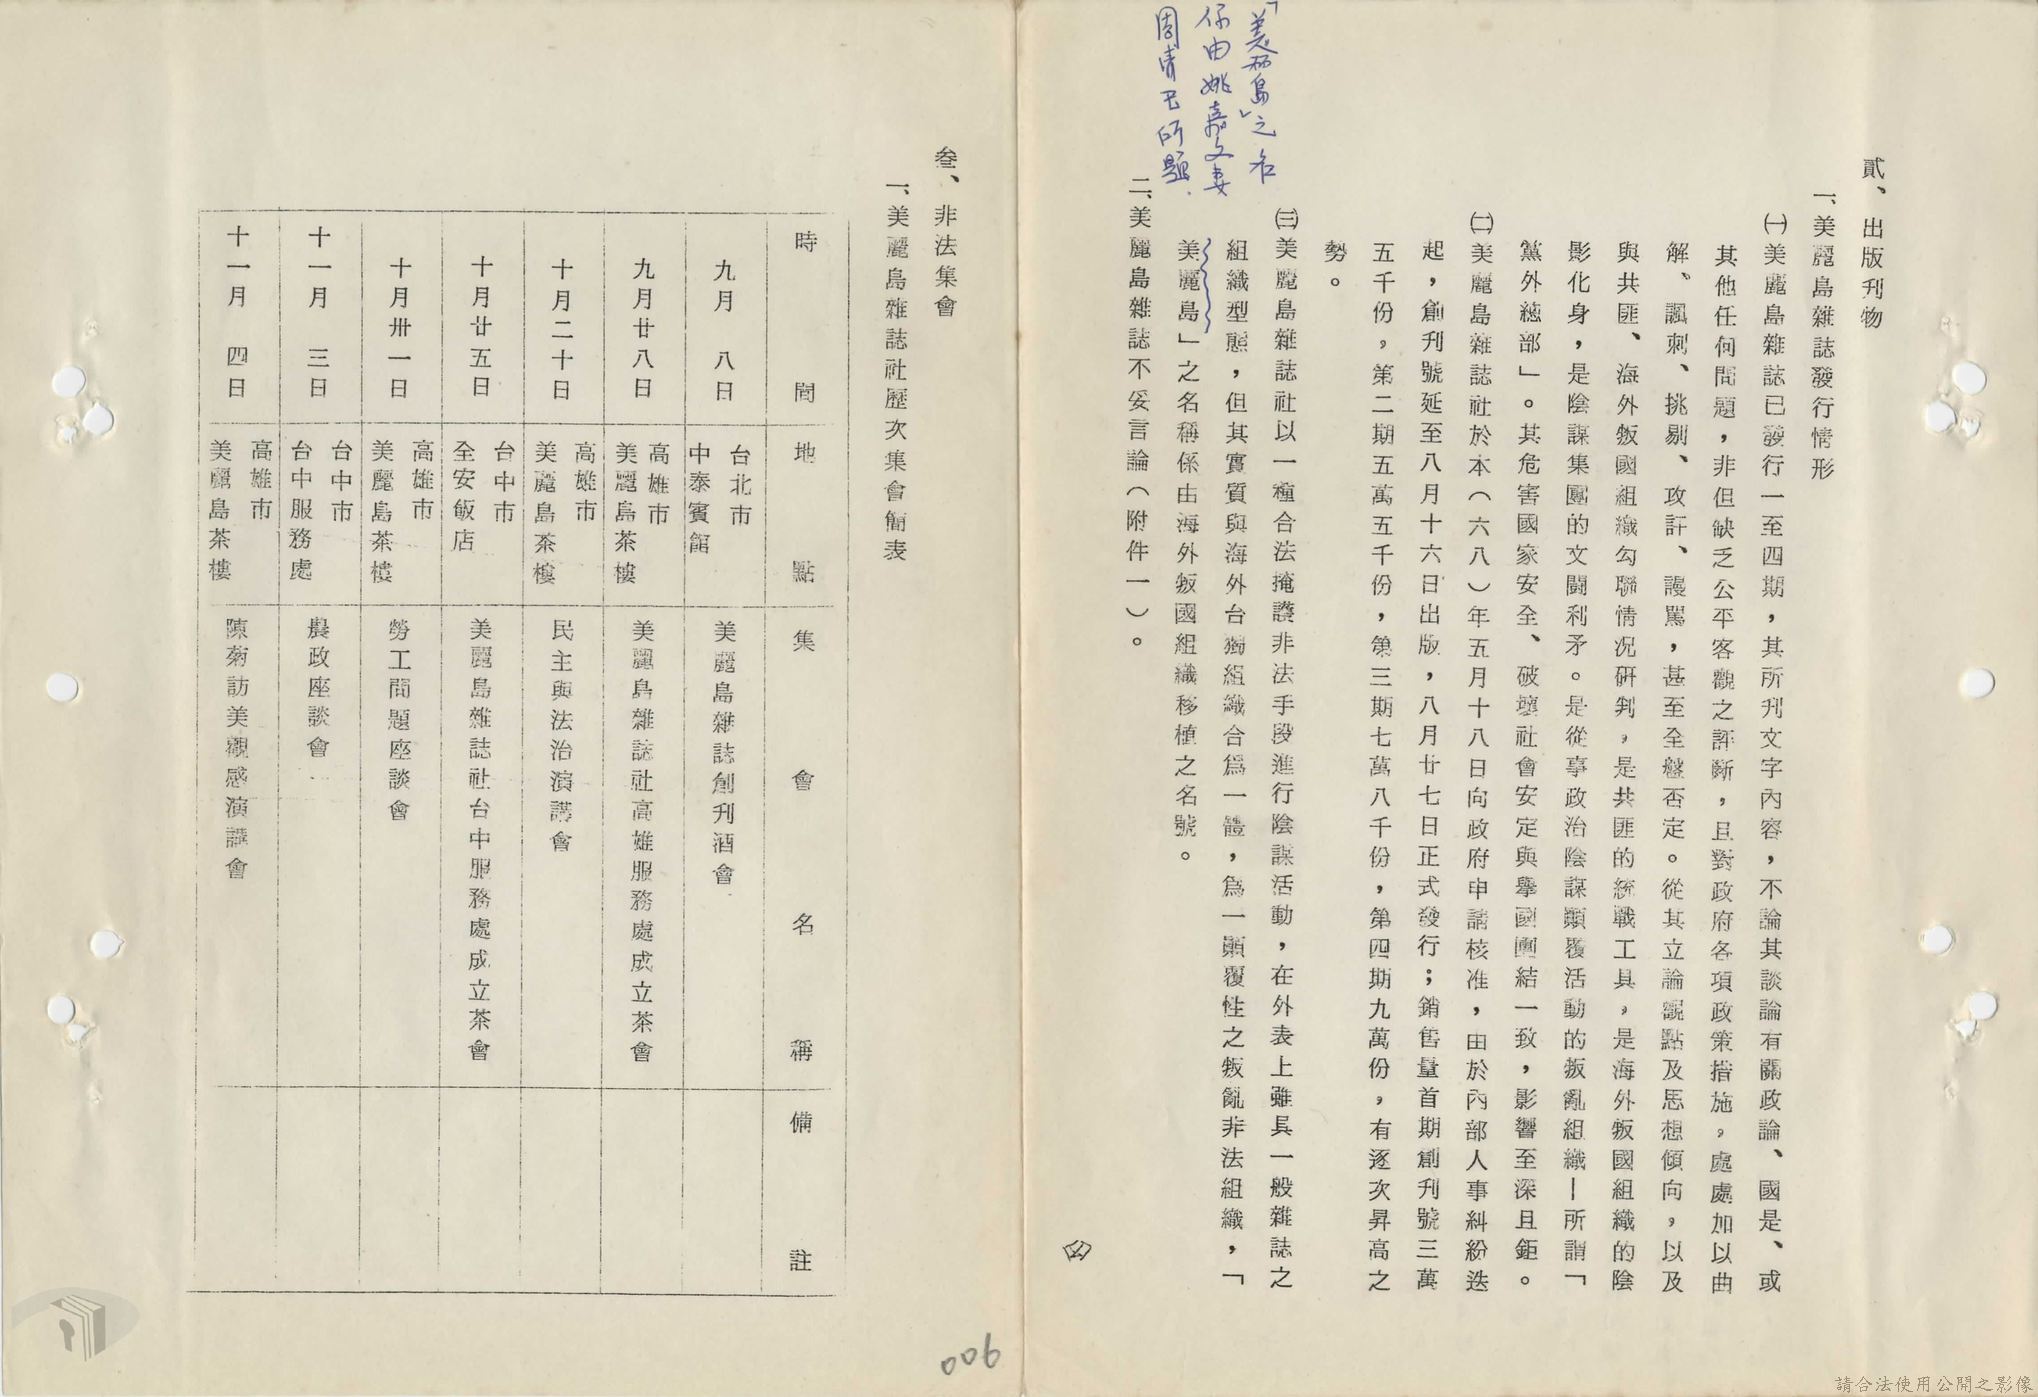 貳、出版刊物
一、美麗島雜誌發行情形
㈠美麗島雜誌已發行一至四期，其所刊文字內容，不論其談論有關政論、國是、或
其他任何問題，非但缺乏公平客觀之評斷，且對政府各項政策措施，處處加以曲
解、諷刺、挑剔、攻訐、謾罵，甚至全盤否定。從其立論觀點及思想傾向，以及
與共匪、海外叛國組織勾聯情況研判，是共匪的統戰工具，是海外叛國組織的陰
影化身，是陰謀集團的文鬪利矛。是從事政治陰謀顛覆活動的叛亂組織—所謂「
黨外總部」。其危害國家安全、破壞社會安定與舉國團結一致，影響至深且鉅。
㈡美麗島雜誌社於本（六八）年五月十八日向政府申請核准，由於內部人事糾紛迭
起，創刊號延至八月十六日出版，八月廿七日正式發行；銷售量首期創刊號三萬
五千份，第二期五萬五千份，第三期七萬八千份，第四期九萬份，有逐次昇高之
勢。
㈢美麗島雜誌社以一種合法掩護非法手段進行陰謀活動，在外表上雖具一般雜誌之
組織型態，但其實質與海外台獨組織合為一體，為一顛覆性之叛亂非法組織，「
美麗島」之名稱係由海外叛國組織移植之名號。
「美麗島」之名
係由姚嘉文妻
周清玉所題.
二、美麗島雜誌不妥言論（附件一）。
㈣
叁、非法集會
一、美麗島雜誌社歷次集會簡表
時間 地點 集會名稱 備註
九月八日 台北市中泰賓館 美麗島雜誌創刊酒會
九月廿八日 高雄市美麗島茶樓 美麗島雜誌社高雄服務處成立茶會
十月二十日 高雄市美麗島茶樓 民主與法治演講會
十月廿五日 台中市全安飯店 美麗島雜誌社台中服務處成立茶會
十月卅一日 高雄市美麗島茶樓 勞工問題座談會
十一月三日 台中市台中服務處 農政座談會
十一月四日 高雄市美麗島茶樓 陳菊訪美觀感演講會
006
請合法使用公開之影像